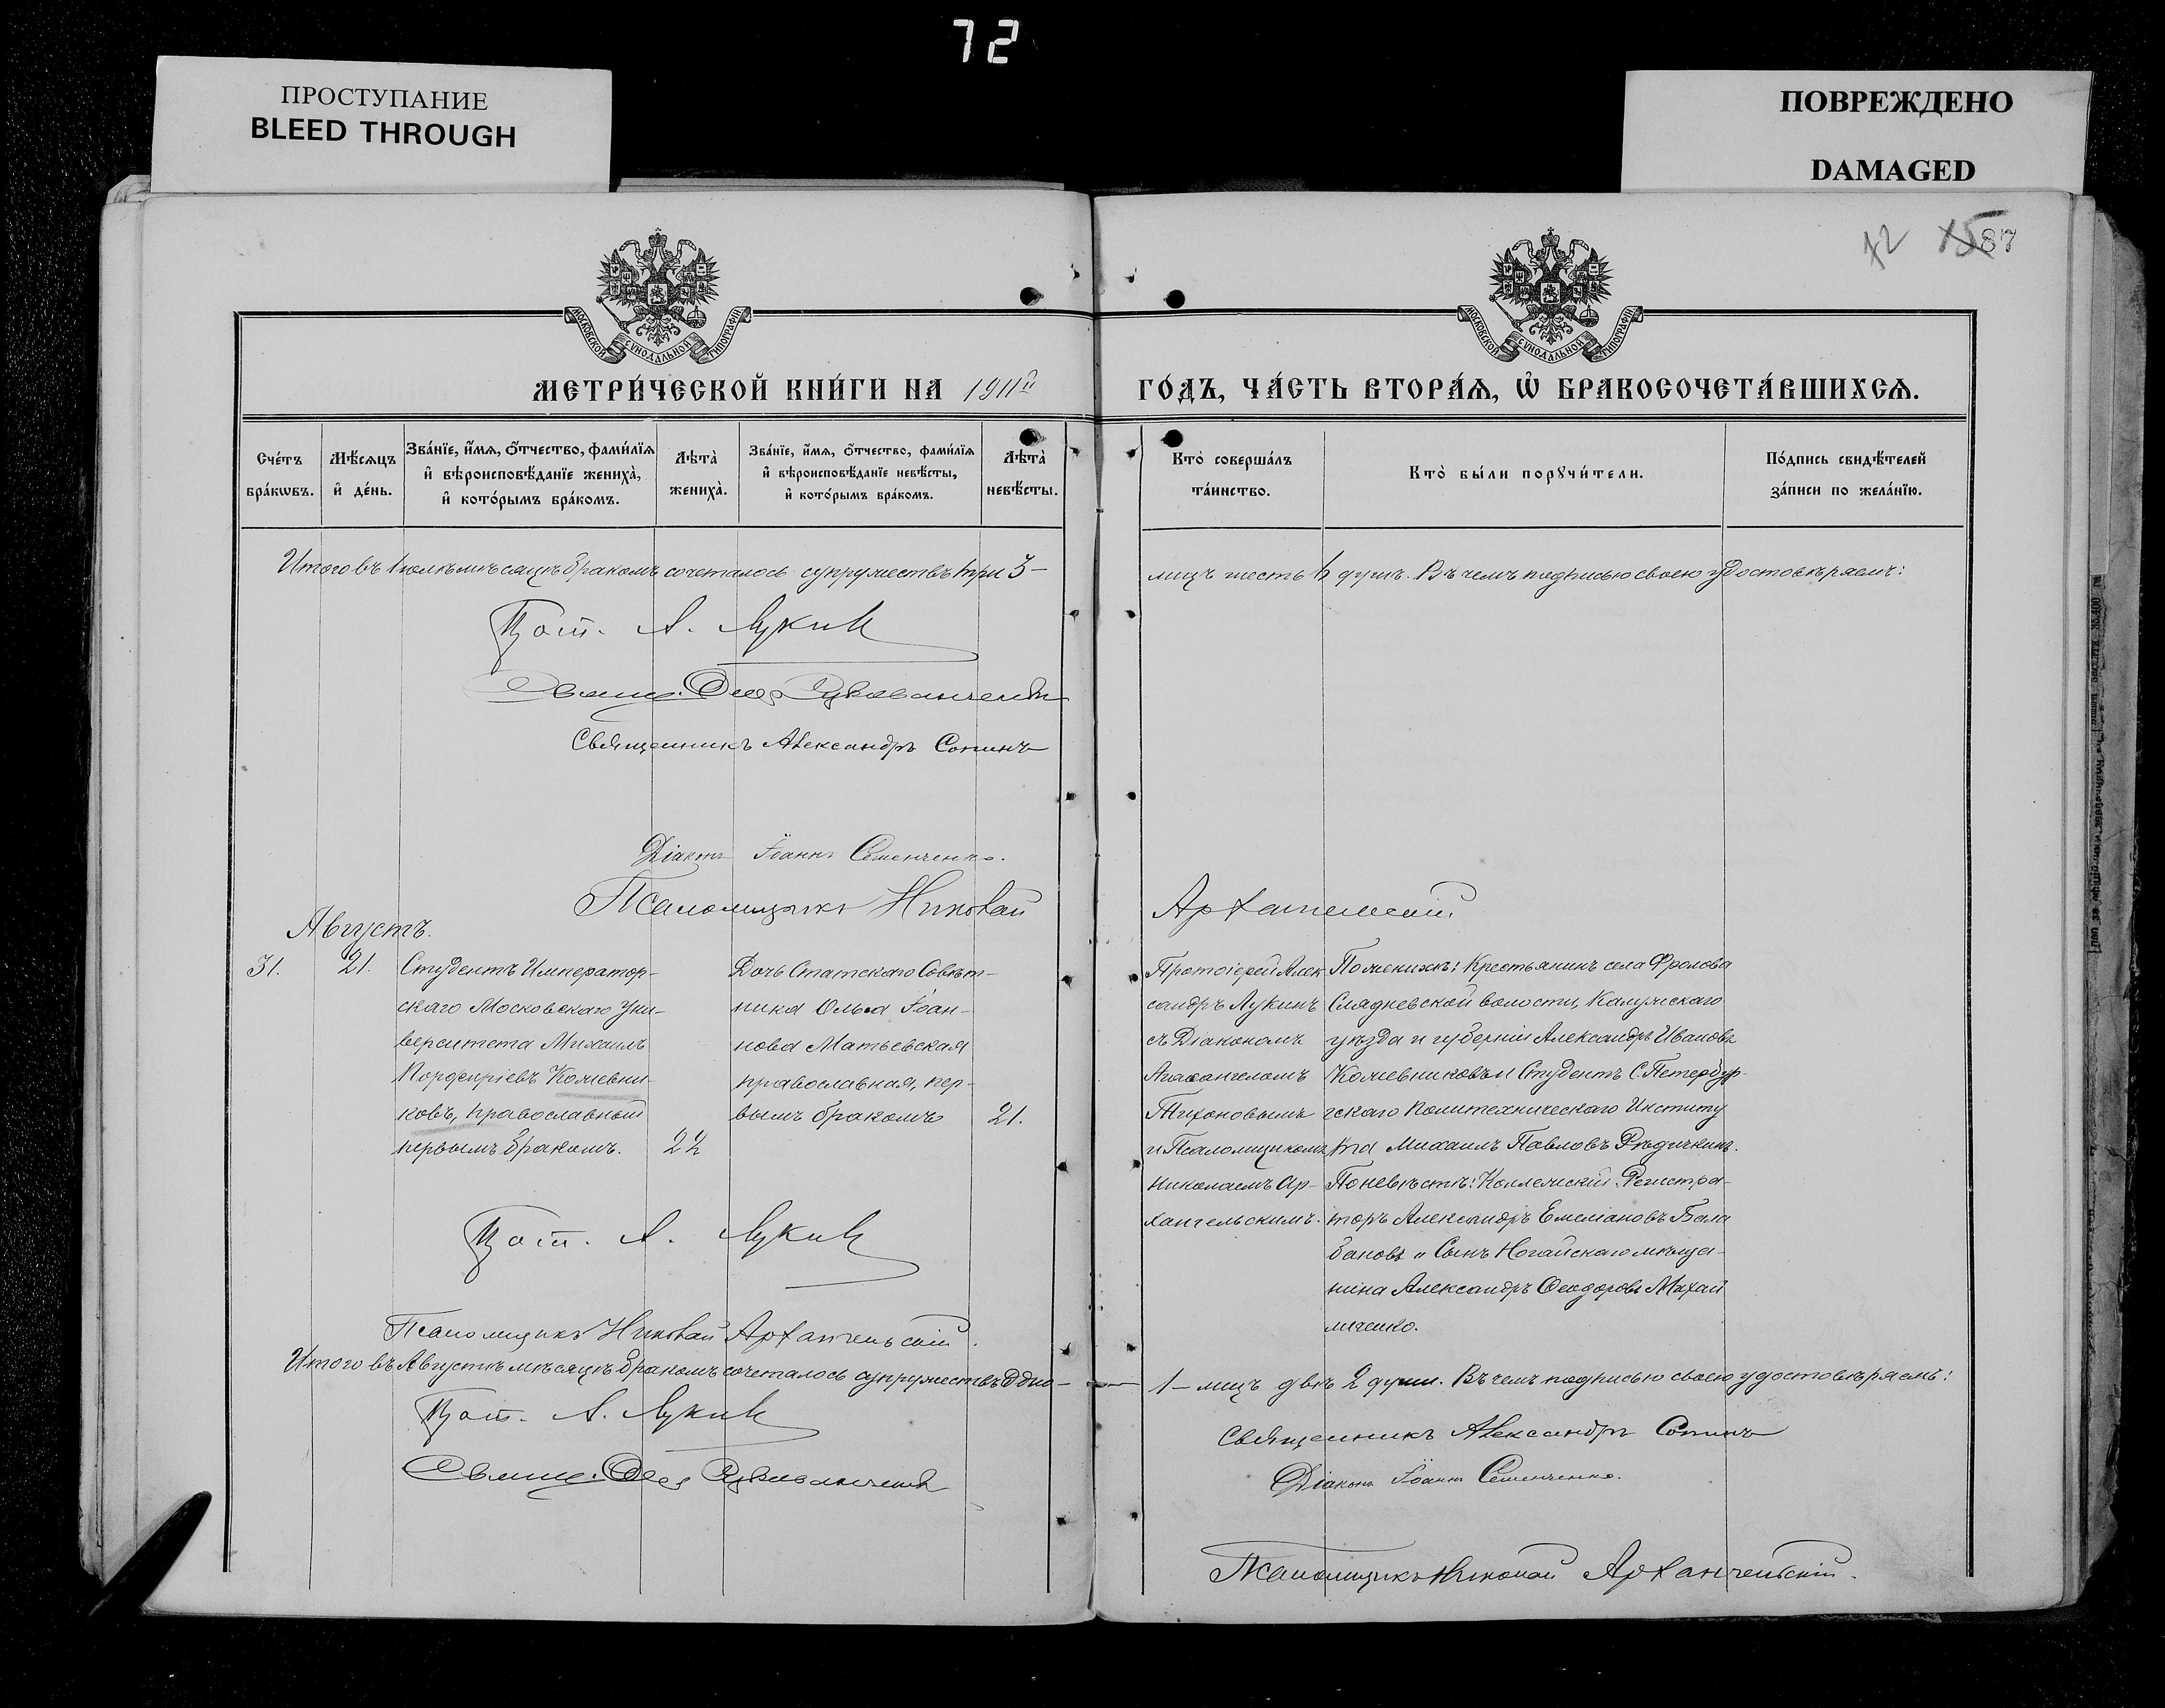 72
ПРОСТУПАНИЕ
BLEED THROUGH
ПОВРЕЖДЕНО
DAMAGED
72 15 87
МОСКОВСКОЙ СѴНОДАЛЬНОЙ ТИПОГРАФІИ
МОСКОВСКОЙ СѴНОДАЛЬНОЙ ТИПОГРАФІИ
МЕТРИ́ЧЕСКОЙ КНИ́ГИ НА 1911й
ГО́ДЪ, ЧА́СТЬ ВТОРА́Ѧ, Ѿ БРАКОСОЧЕТА́ВШИХСѦ.
Сче́тъ бра́кѡвъ.
Мѣ́сѧцъ и҆ де́нь.
Зва́нїе, и҆́мѧ, ѻ҆́тчество, фами́лїѧ и҆ вѣроисповѣ́данїе жениха̀, и҆ кото́рымъ бра́комъ.
Лѣта̀ жениха̀.
Зва́нїе, и҆́мѧ, ѻ҆́тчество, фами́лїѧ и҆ вѣроисповѣ́данїе невѣ́сты, и҆ кото́рымъ бра́комъ.
Лѣта̀ невѣ́сты.
Кто̀ соверша́лъ та́инство.
Кто̀ бы́ли порꙋчи́тели.
По́дпись свидѣ́телей за́писи по жела́нїю.
Итого въ Іюлѣ мѣсяцѣ бракомъ сочеталось супружествъ три 3 –
лицъ шесть 6 душъ. Въ чемъ подписью своею удостовѣряемъ:
Прот. А. Лукин
Священникъ Александръ Сопинъ
Діаконъ Іоаннъ Семенченко.
Псаломщикъ Николай
Архангельскій
Августъ.
31.
21.
Студентъ Император-
скаго Московскаго Уни-
верситета Михаилъ
Порфиріевъ Кожевни-
ковъ, православный
первымъ бракомъ.
22
Дочь Статскаго Совѣт-
ника Ольга Іоан-
нова Матьевская
православная, пер-
вымъ бракомъ
21.
Протоіерей Алек
сандръ Лукинъ
съ Діакономъ
Агаѳангеломъ
Тихоновымъ
и Псаломщикомъ
Николаемъ Ар-
хангельскимъ.
По женихѣ: Крестьянинъ села Фролова
Слядневской волости, Калужскаго
уѣзда и губерніи Александръ Ивановъ
Кожевниковъ и Студентъ С. Петербур-
гскаго Политехническаго Институ
та Михаилъ Павловъ Рѣдичкинъ.
По невѣстѣ: Коллежскій Регистра-
торъ Александръ Емеліановъ Бала
бановъ и Сынъ Ногайскаго мѣща-
нина Александръ Ѳеодоровъ Михай
личенко.
Прот. А. Лукин
Псаломщикъ Николай Архангельскій.
Итого въ Августѣ мѣсяцѣ бракомъ сочеталось супружествъ Одно –
1 – лицъ двѣ 2 души. Въ чемъ подписью своею удостовѣряемъ:
Прот. А. Лукин
Священникъ Александръ Сопинъ
Діаконъ Іоаннъ Семенченко.
Псаломщикъ Николай Архангельскій.